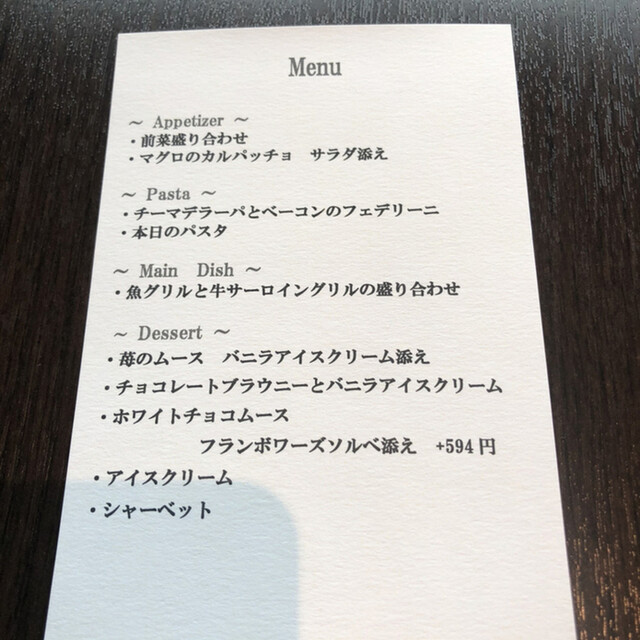 Menu
~ Appetizer ~
・前菜盛り合わせ
・マグロのカルパッチョ　サラダ添え
~ Pasta ~
・チーマデラーパとベーコンのフェデリーニ
・本日のパスタ
~ Main Dish ~
・魚グリルと牛サーロイングリルの盛り合わせ
~ Dessert ~
・苺のムース　バニラアイスクリーム添え
・チョコレートブラウニーとバニラアイスクリーム
・ホワイトチョコムース
フランボワーズソルベ添え　+594円
・アイスクリーム
・シャーベット